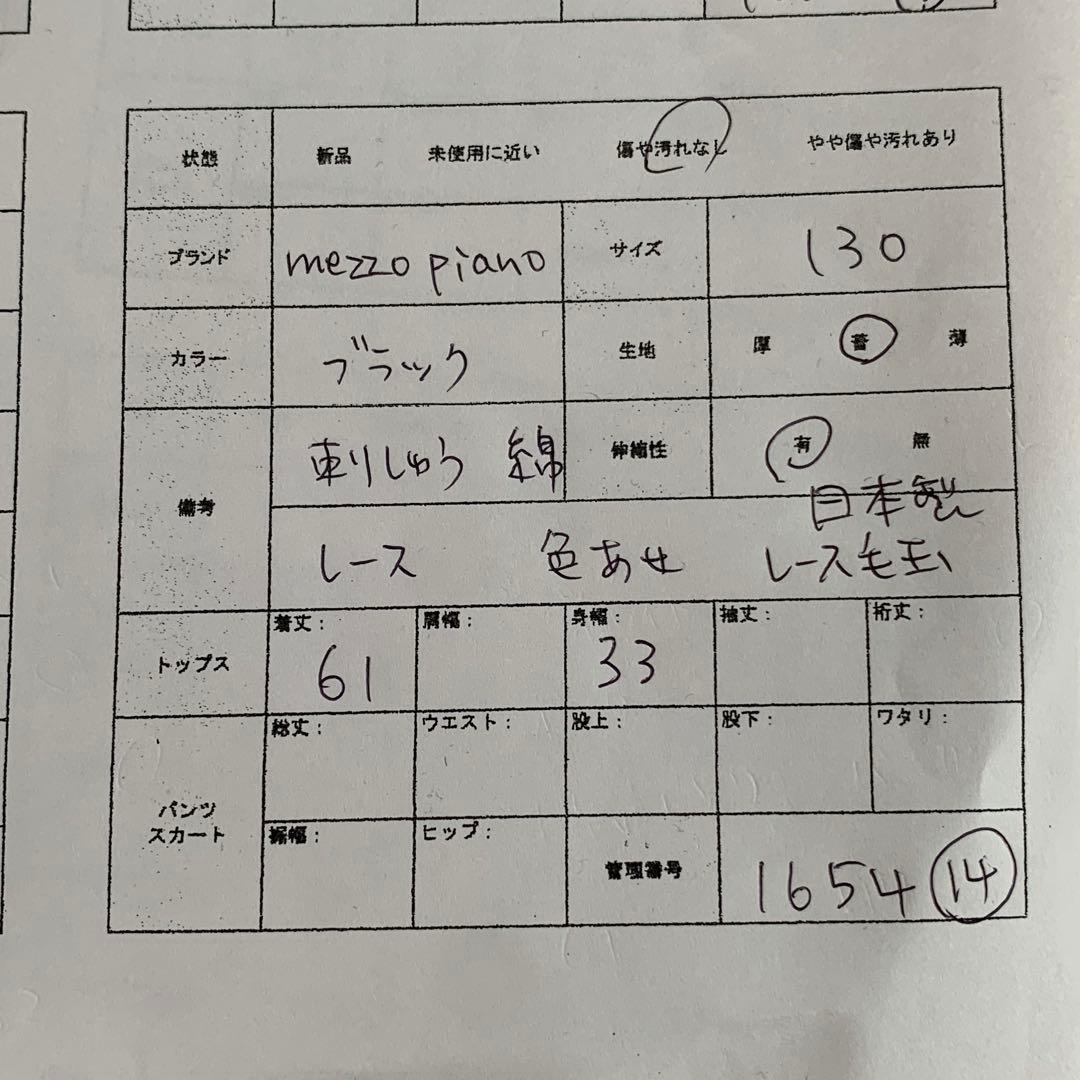 状態 新品 未使用に近い 傷や汚れなし やや傷や汚れあり
ブランド mezzo piano サイズ 130
カラー ブラック 生地 厚 普 薄
備考 刺しゅう 綿 伸縮性 有 無
日本製
レース 色あせ レース毛玉
トップス 着丈: 61 肩幅: 身幅: 33 袖丈: 裄丈:
パンツ スカート 総丈: ウエスト: 股上: 股下: ワタリ:
裾幅: ヒップ: 管理番号 1654 14